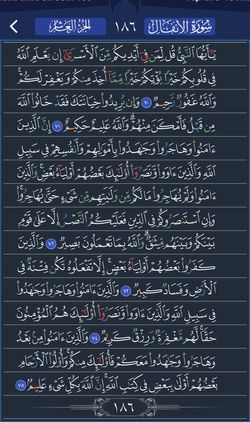 سُورَةُ الأَنفَالِ ١٨٦ الجُزْءُ العَاشِرُ
يَٰٓأَيُّهَا ٱلنَّبِىُّ قُل لِّمَن فِىٓ أَيْدِيكُم مِّنَ ٱلْأَسْرَىٰٓ إِن يَعْلَمِ ٱللَّهُ
فِى قُلُوبِكُمْ خَيْرًا يُؤْتِكُمْ خَيْرًا مِّمَّآ أُخِذَ مِنكُمْ وَيَغْفِرْ لَكُمْ
وَٱللَّهُ غَفُورٌ رَّحِيمٌ ٧٠ وَإِن يُرِيدُوا۟ خِيَانَتَكَ فَقَدْ خَانُوا۟ ٱللَّهَ
مِن قَبْلُ فَأَمْكَنَ مِنْهُمْ وَٱللَّهُ عَلِيمٌ حَكِيمٌ ٧١ إِنَّ ٱلَّذِينَ
ءَامَنُوا۟ وَهَاجَرُوا۟ وَجَٰهَدُوا۟ بِأَمْوَٰلِهِمْ وَأَنفُسِهِمْ فِى سَبِيلِ
ٱللَّهِ وَٱلَّذِينَ ءَاوَوا۟ وَّنَصَرُوٓا۟ أُو۟لَٰٓئِكَ بَعْضُهُمْ أَوْلِيَآءُ بَعْضٍ وَٱلَّذِينَ
ءَامَنُوا۟ وَلَمْ يُهَاجِرُوا۟ مَا لَكُم مِّن وَلَٰيَتِهِم مِّن شَىْءٍ حَتَّىٰ يُهَاجِرُوا۟
وَإِنِ ٱسْتَنصَرُوكُمْ فِى ٱلدِّينِ فَعَلَيْكُمُ ٱلنَّصْرُ إِلَّا عَلَىٰ قَوْمٍۭ
بَيْنَكُمْ وَبَيْنَهُم مِّيثَٰقٌ وَٱللَّهُ بِمَا تَعْمَلُونَ بَصِيرٌ ٧٢ وَٱلَّذِينَ
كَفَرُوا۟ بَعْضُهُمْ أَوْلِيَآءُ بَعْضٍ إِلَّا تَفْعَلُوهُ تَكُن فِتْنَةٌ فِى
ٱلْأَرْضِ وَفَسَادٌ كَبِيرٌ ٧٣ وَٱلَّذِينَ ءَامَنُوا۟ وَهَاجَرُوا۟ وَجَٰهَدُوا۟
فِى سَبِيلِ ٱللَّهِ وَٱلَّذِينَ ءَاوَوا۟ وَّنَصَرُوٓا۟ أُو۟لَٰٓئِكَ هُمُ ٱلْمُؤْمِنُونَ
حَقًّا لَّهُم مَّغْفِرَةٌ وَرِزْقٌ كَرِيمٌ ٧٤ وَٱلَّذِينَ ءَامَنُوا۟ مِنۢ بَعْدُ
وَهَاجَرُوا۟ وَجَٰهَدُوا۟ مَعَكُمْ فَأُو۟لَٰٓئِكَ مِنكُمْ وَأُو۟لُوا۟ ٱلْأَرْحَامِ
بَعْضُهُمْ أَوْلَىٰ بِبَعْضٍ فِى كِتَٰبِ ٱللَّهِ إِنَّ ٱللَّهَ بِكُلِّ شَىْءٍ عَلِيمٌۢ ٧٥
١٨٦